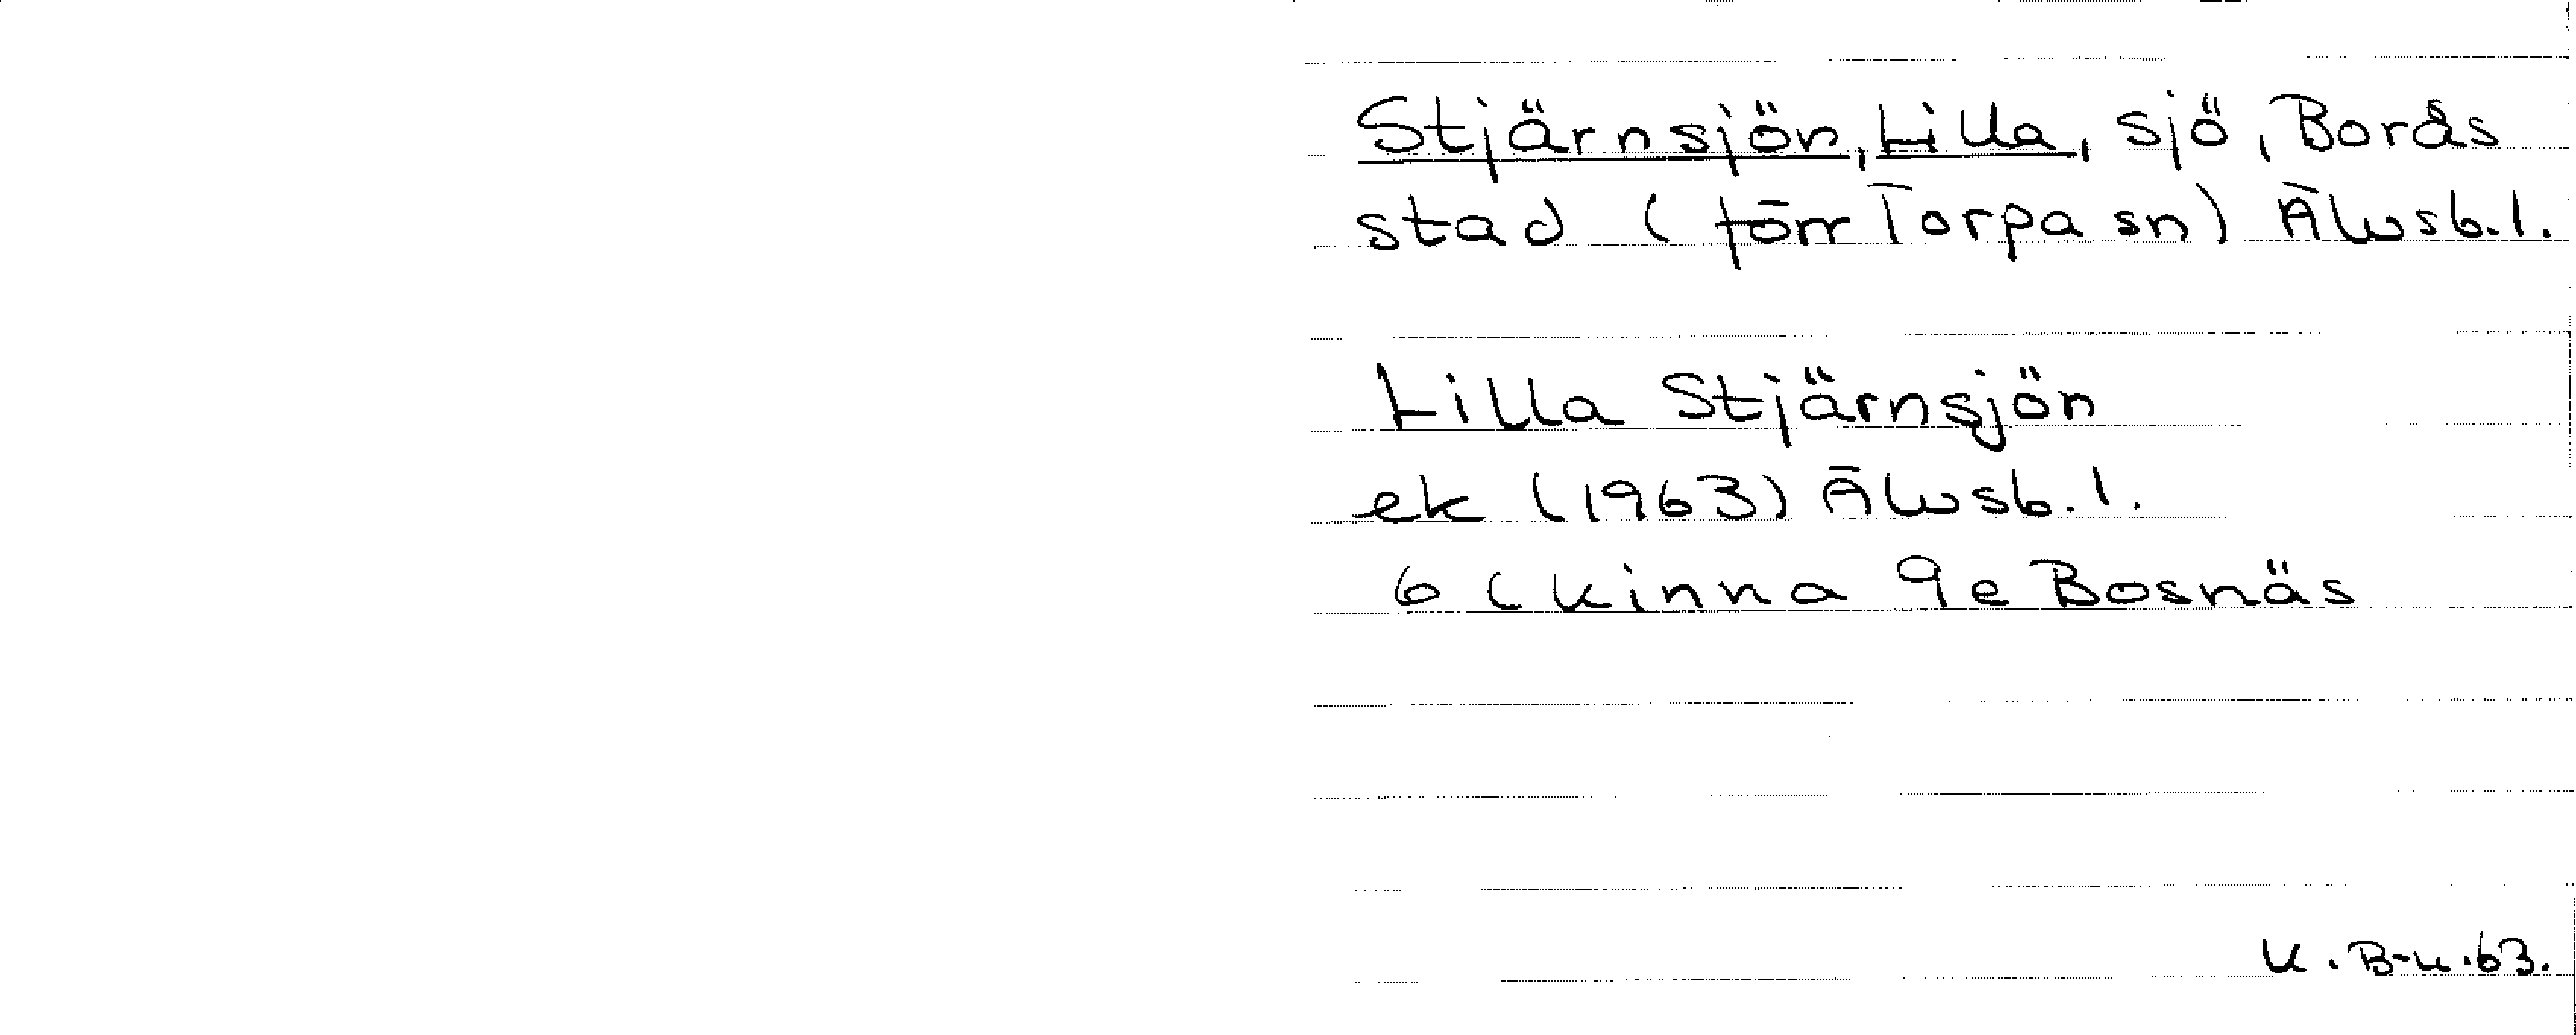 Stjärnsjön, Lilla, sjö, Borås
stad (förr Torpa sn) Älvsb. l.
Lilla Stjärnsjön
ek (1963) Älvsb. l.
6 C Kinna 9e Bosnäs
K. B-k. 63.